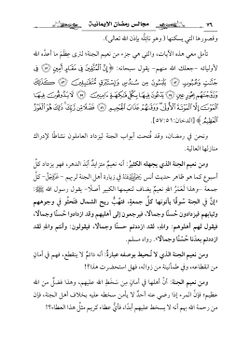 ٧٦ مجالس رمضان الإيمانية
وقصورها التي يسكنها (وهو نائلُه بإذن الله تعالى).
تأمل معي هذه الآيات، والتي هي جزء من نعيم الجنة؛ لترى عِظَمَ ما أعدَّه الله
لأوليائه -جعلك الله منهم- يقول سبحانه: ﴿إِنَّ الْمُتَّقِينَ فِي مَقَامٍ أَمِينٍ ۝ فِي
جَنَّاتٍ وَعُيُونٍ ۝ يَلْبَسُونَ مِن سُندُسٍ وَإِسْتَبْرَقٍ مُّتَقَابِلِينَ ۝ كَذَلِكَ
وَزَوَّجْنَاهُم بِحُورٍ عِينٍ ۝ يَدْعُونَ فِيهَا بِكُلِّ فَاكِهَةٍ آمِنِينَ ۝ لَا يَذُوقُونَ
فِيهَا الْمَوْتَ إِلَّا الْمَوْتَةَ الْأُولَى وَوَقَاهُمْ عَذَابَ الْجَحِيمِ ۝ فَضْلًا مِّن رَّبِّكَ ذَلِكَ هُوَ الْفَوْزُ
الْعَظِيمُ﴾ [الدخان:٥١-٥٧].
ونحن في رمضان، وقد فُتحت أبواب الجنة ليزداد العاملون نشاطًا لإدراك
منازلها العالية.
ومن نعيم الجنة الذي يجهله الكثير: أنه نعيمٌ متزايدٌ أبدَ الدهر، فهو يزداد كلَّ
أسبوع كما هو ظاهر حديث أنس في زيارة أهل الجنة لربهم - - كلَّ
جمعة -هذا لَعَمْرُ الله نعيمٌ يضاف لنعيمها الكبير أصلًا- يقول رسول الله ﷺ:
«إنَّ في الجنةِ سُوقًا يأتونها كلَّ جمعةٍ، فتهُبُّ ريحُ الشمال فتَحثُو في وجوههم
وثيابهم فيزدادون حُسنًا وجمالًا، فيرجعون إلى أهليهم وقد ازدادوا حُسنًا وجمالًا،
فيقول لهم أهلوهم: والله، لقد ازددتم حُسنًا وجمالًا، فيقولون: وأنتم والله لقد
ازددتم بعدَنا حُسنًا وجمالًا». رواه مسلم.
ومن نعيم الجنة الذي لا تُحيط بوصفه عبارةٌ: أنه دائمٌ لا ينقطع، فهم في أمانٍ
من انقطاعه، وفي طمأنينة من زواله، فهل استحضرت هذا؟!
ومن نعيم الجنة: أنَّ أهلها في أمانٍ مِن سَخَط الله عليهم، وهذا فضلٌ من الله
عظيم؛ فإنَّ المرء إذا رضي عنه أحدٌ لا يأمن سخطه عليه بخلاف أهل الجنة، فإن
من رحمة الله بهم أنه لا يسخط عليهم أبدًا، فأيُّ عطاء كريم مثلُ هذا العطاء؟!